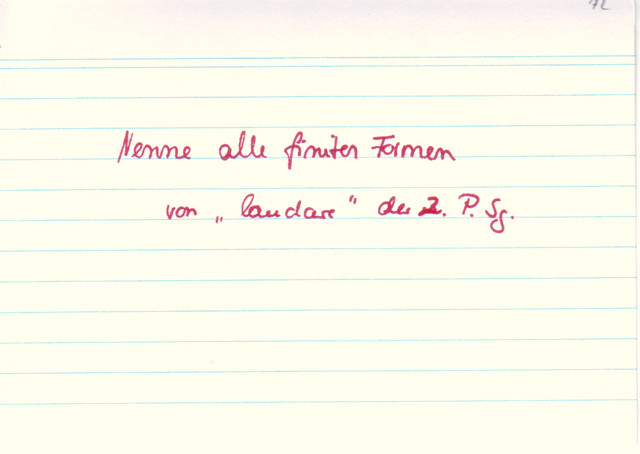 72
Nenne alle finiten Formen
von „laudare" der 2. P. Sg.